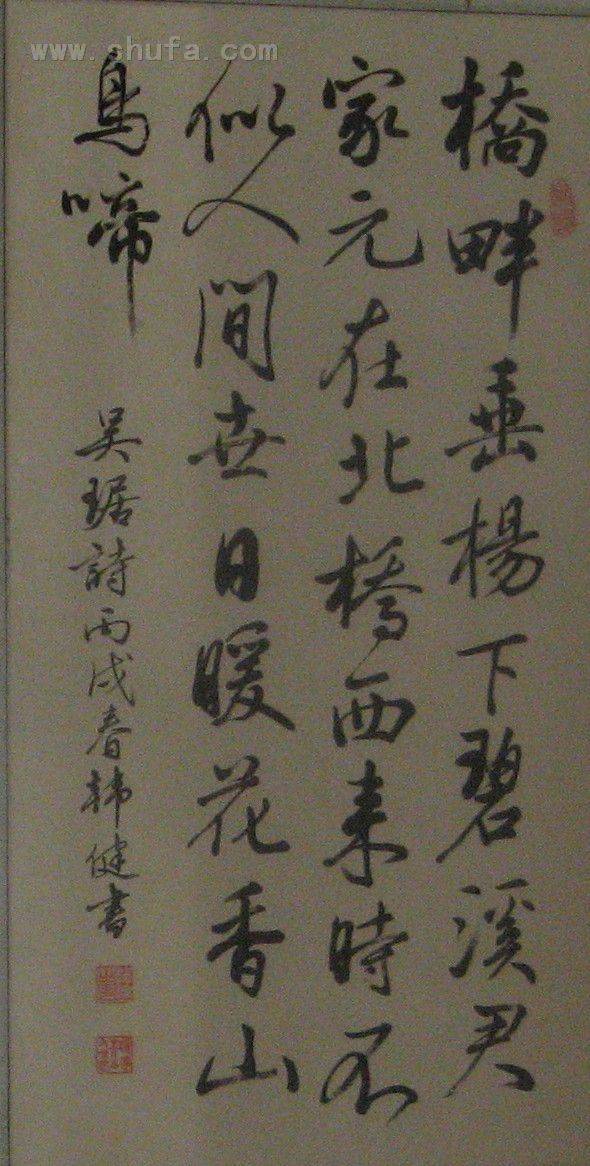 www.shufa.com
橋畔垂楊下碧溪君
家元在北橋西来時不
似人間世日暖花香山
鳥啼
吴琚詩丙戌春韩健書